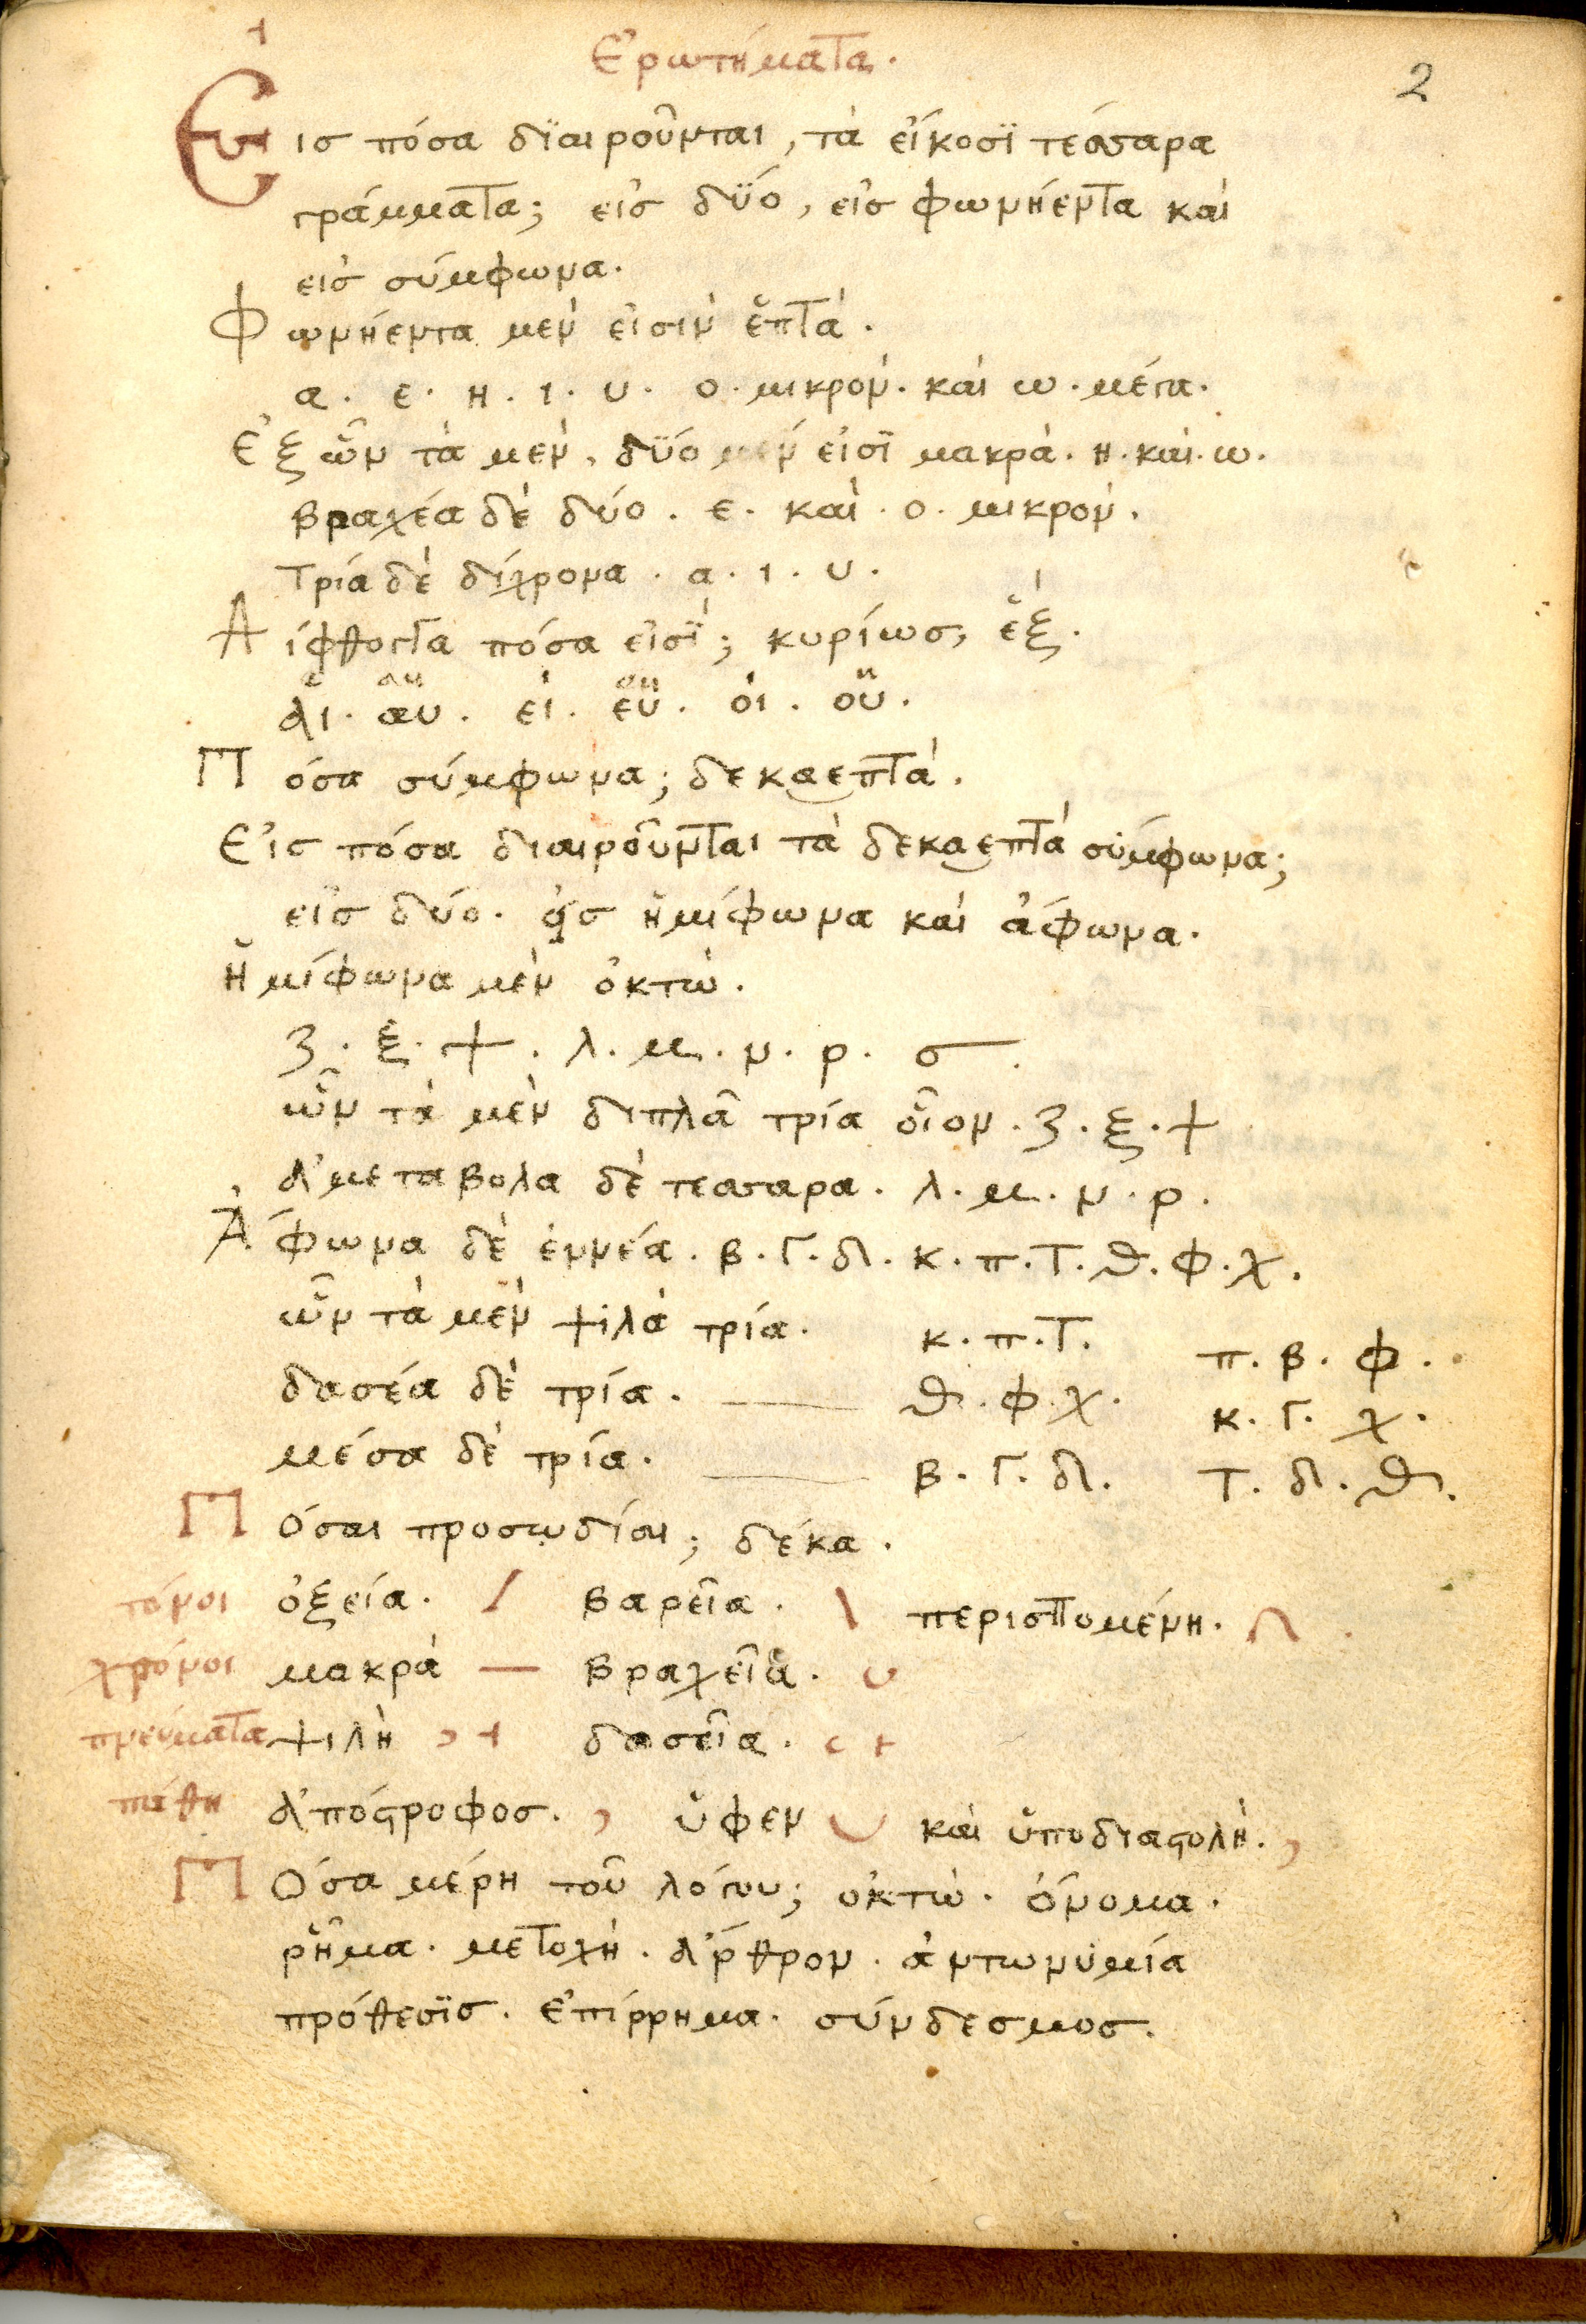 Ἐρωτήματα.
2
Εἰς πόσα διαιροῦνται, τὰ εἴκοσϊ τέσσαρα
γράμματα; εἰς δύο, εἰς φωνήεντα καὶ
εἰς σύμφωνα.
Φωνήεντα μὲν εἰσὶν ἑπτά.
α. ε. η. ι. υ. ο. μικρὸν. καὶ ω. μέγα.
Ἐξ ὧν τὰ μὲν, δύο μὲν εἰσὶ μακρὰ. η. καὶ. ω.
βραχέα δὲ δύο. ε. καὶ. ο. μικρὸν.
τρία δὲ δίχρονα. α. ι. υ.
Δίφθογγα πόσα εἰσὶ; κυρίως, ἓξ.
αι. αυ. ει. ευ. οι. ου.
Πόσα σύμφωνα; δεκαεπτά.
Εἰς πόσα διαιροῦνται τὰ δεκαεπτὰ σύμφωνα;
εἰς δύο. εἰς ἡμίφωνα καὶ ἄφωνα.
ἡμίφωνα μὲν ὀκτὼ.
ζ. ξ. ψ. λ. μ. ν. ρ. σ.
ὧν τὰ μὲν διπλᾶ τρία οἷον. ζ. ξ. ψ
ἀμετάβολα δὲ τεσσαρα. λ. μ. ν. ρ.
Ἄφωνα δὲ ἐννέα. β. γ. δ. κ. π. τ. θ. φ. χ.
ὧν τὰ μὲν ψιλὰ τρία. κ. π. τ. π. β. φ.
δασέα δὲ τρία. θ. φ. χ. κ. γ. χ.
μέσα δὲ τρία. β. γ. δ. τ. δ. θ.
Πόσαι προσῳδίαι; δέκα.
τόνοι ὀξεία. / βαρεῖα. \ περισπομένη. ῀
χρόνοι μακρὰ — βραχεῖα. ᴗ
πνεύματα ψιλὴ ᾿ ┤ δασεῖα. ῾ ├
πάθη ἀπόστροφος. ᾿ ὑφεν ‿ καὶ ὑποδιαστολὴ. ,
Πόσα μέρη τοῦ λόγου; ὀκτὼ. ὄνομα.
ῥῆμα. μετοχὴ. ἄρθρον. ἀντωνυμία
πρόθεσϊς. ἐπίρρημα. σύνδεσμος.